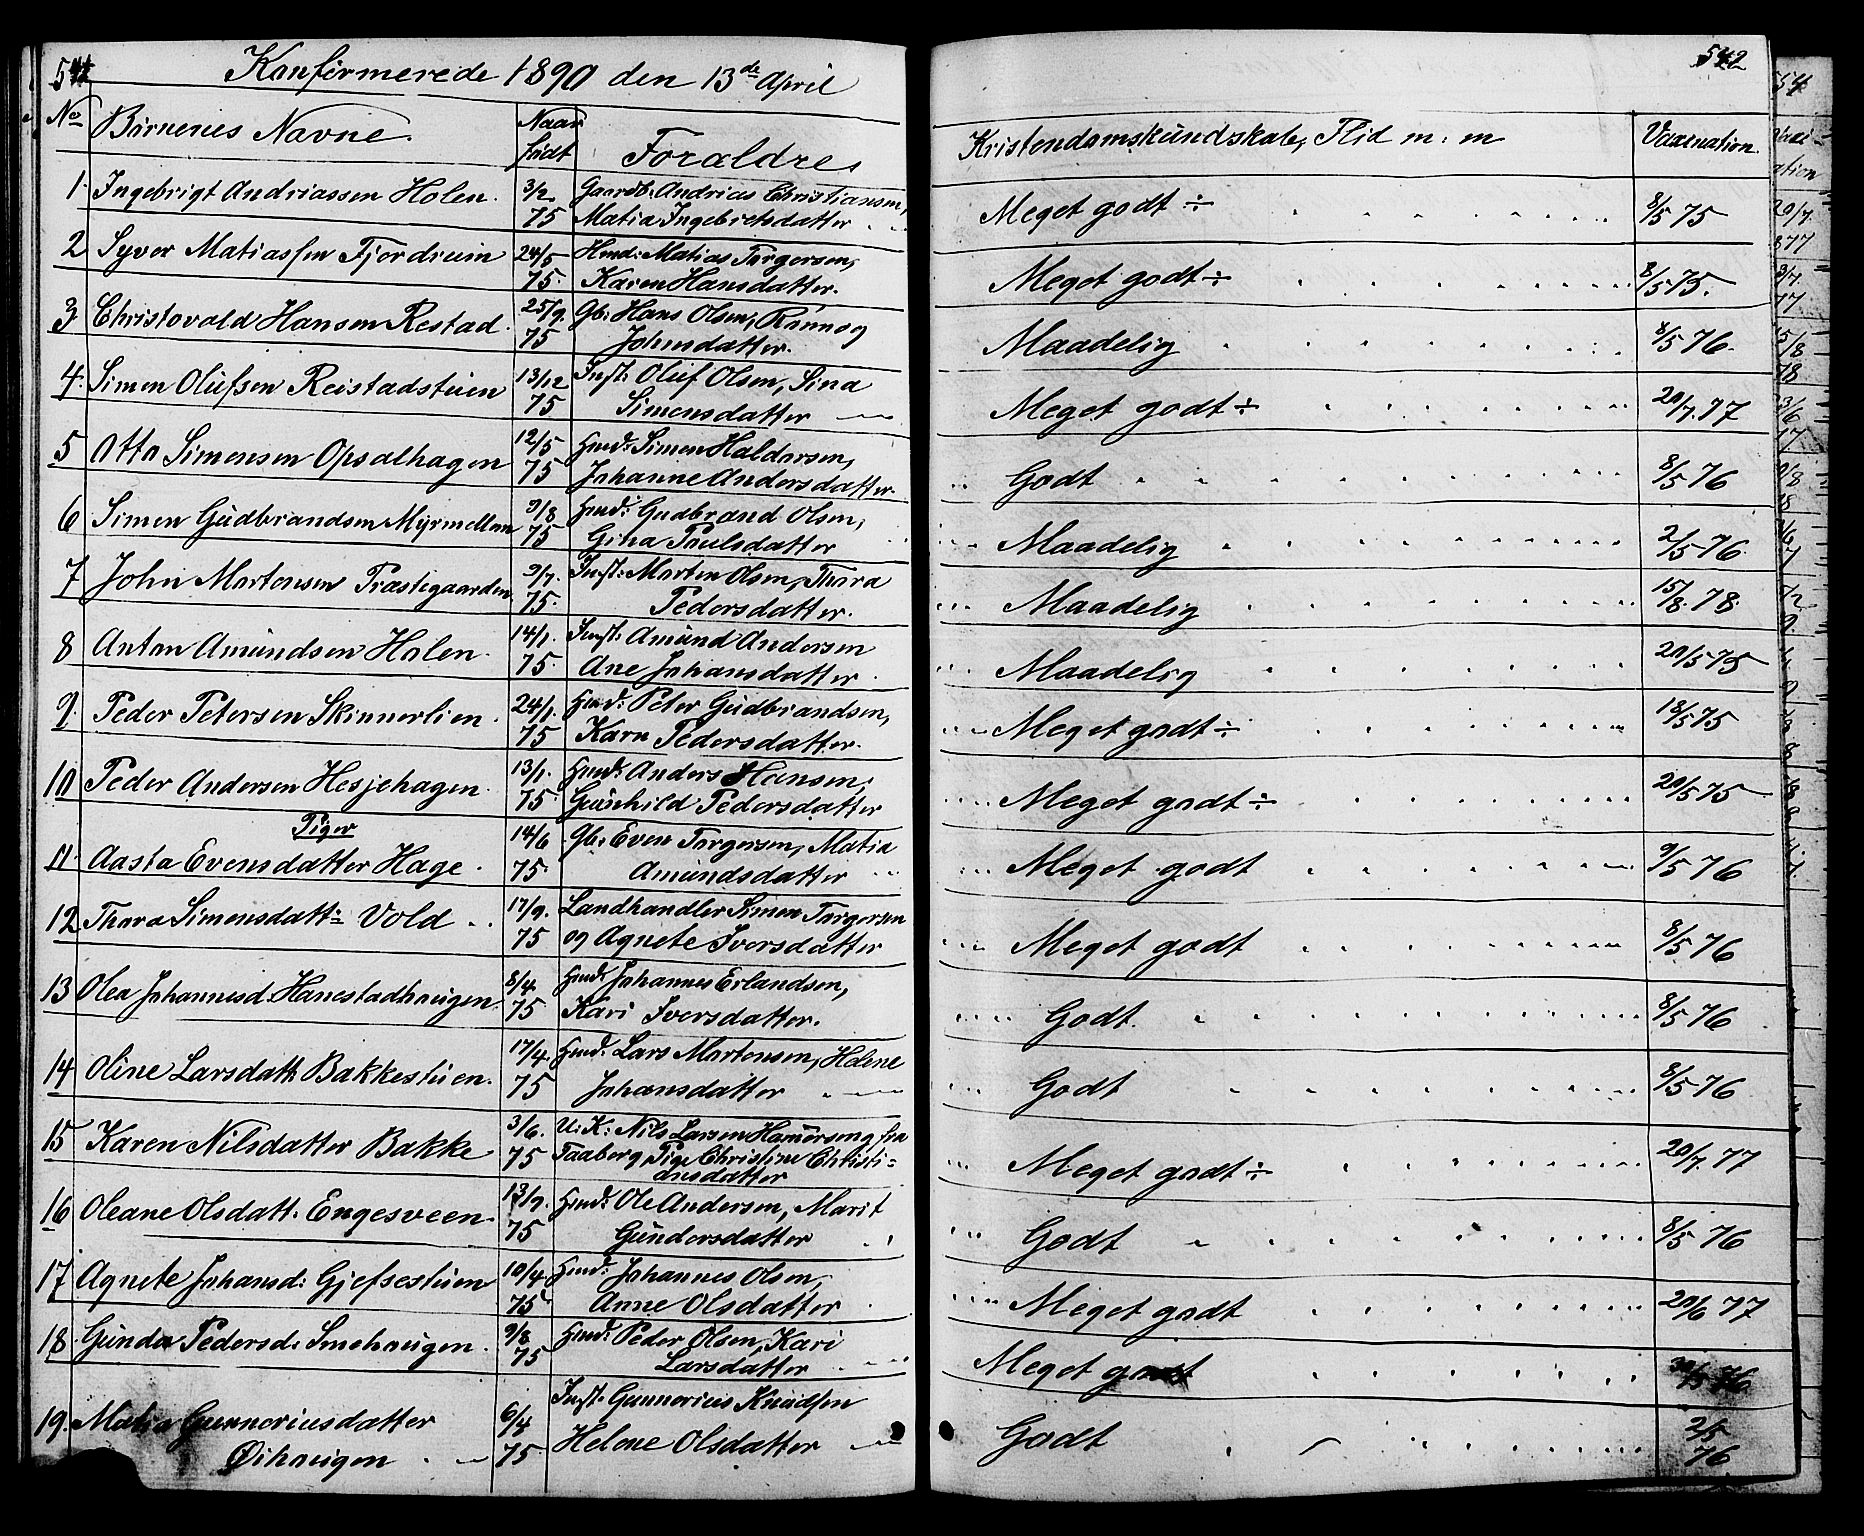 541 Konfirmerede 1890 den 13de April
No Børnenes Navne. Naar født Forældre
1. Ingebrigt Andriassen Holen. 3/2 75 Gaardb. Andrias Christiansen,
Matia Ingebretsdatter
2 Syver Matiassen Fjordruin 24/5 75. Hmd: Matias Torgersen,
Karen Hansdatter.
3 Christovald Hansen Restad. 25/9. 75 Gb: Hans Olsen, Rønnog
Johnsdatter.
4. Simen Olufsen Reistadstuen 13/12 75 Inst: Oluf Olsen, Sina
Simensdatter
5 Otto Simensen Opsalhagen 12/5 75 Hmd: Simen Haldorsen,
Johanne Andersdatter.
6 Simen Gudbrandsen Myrmellom 9/8 75 Hmd: Gudbrand Olsen,
Gina Paulsdatter
7 John Martensen Præstegaarden 9/7. 75. Inst: Marten Olsen, Thora
Pedersdatter.
8 Anton Amundsen Holen. 14/1. 75. Inst: Amund Andersen
Ane Johansdatter.
9. Peder Petersen Skinnerlien. 24/1. 75 Hmd: Peter Gudbrandsen,
Kari Pedersdatter.
10 Peder Andersen Hesjehagen. 13/1. 75 Hmd: Anders Hansen,
Gunhild Pedersdatter
Piger
11. Aasta Evensdatter Hage. 14/6 75. Gb: Even Torgersen, Matia
Amundsdatter
12 Thora Simensdatt: Vold 17/9. 75 Landhandler Simen Torgersen
og Agnete Iversdatter
13 Olea Johannesd. Hanestadhaugen 8/4. 75 Hmd: Johannes Erlandsen,
Kari Iversdatter.
14 Oline Larsdatt. Bakkestuen. 17/4. 75 Hmd: Lars Martensen, Helene
Johansdatter
15 Karen Nilsdatter Bakke 3/6. 75 U. K: Nils Larsen Hamørseng fra
Faaberg, Pige Christine Christi-
ansdatter
16 Oleane Olsdatt. Engesveen. 13/9. 75 Hmd: Ole Andersen, Marit
Gundersdatter
17 Agnete Johansd: Gjefsestuen 10/4. 75. Hmd: Johannes Olsen,
Anne Olsdatter
18 Gunda Pedersd. Smehaugen. 9/8 75 Hmd: Peder Olsen, Kari
Larsdatter
19. Matia Gunneriusdatter 6/4 75. Inst: Gunnerius Knudsen
Øihaugen Helene Olsdatter
542
Kristendomskundskab, Flid m. m Vaccination.
Meget godt ÷ 8/5 75
Meget godt ÷ 8/5 75.
Maadelig 8/5 76.
Meget godt ÷ 20/7. 77
Godt 8/5 76
Maadelig 2/5 76.
Maadelig 15/8. 78.
Maadelig 20/5 75
Meget godt ÷ 18/5 75
Meget godt ÷ 20/5 75
Meget godt 9/5 76
Meget godt 8/5 76
Godt. 8/5 76
Godt 8/5 76
Meget godt ÷ 20/7. 77
Godt 8/5 76
Meget godt 20/6 77
Meget godt 76
Godt 2/5 76